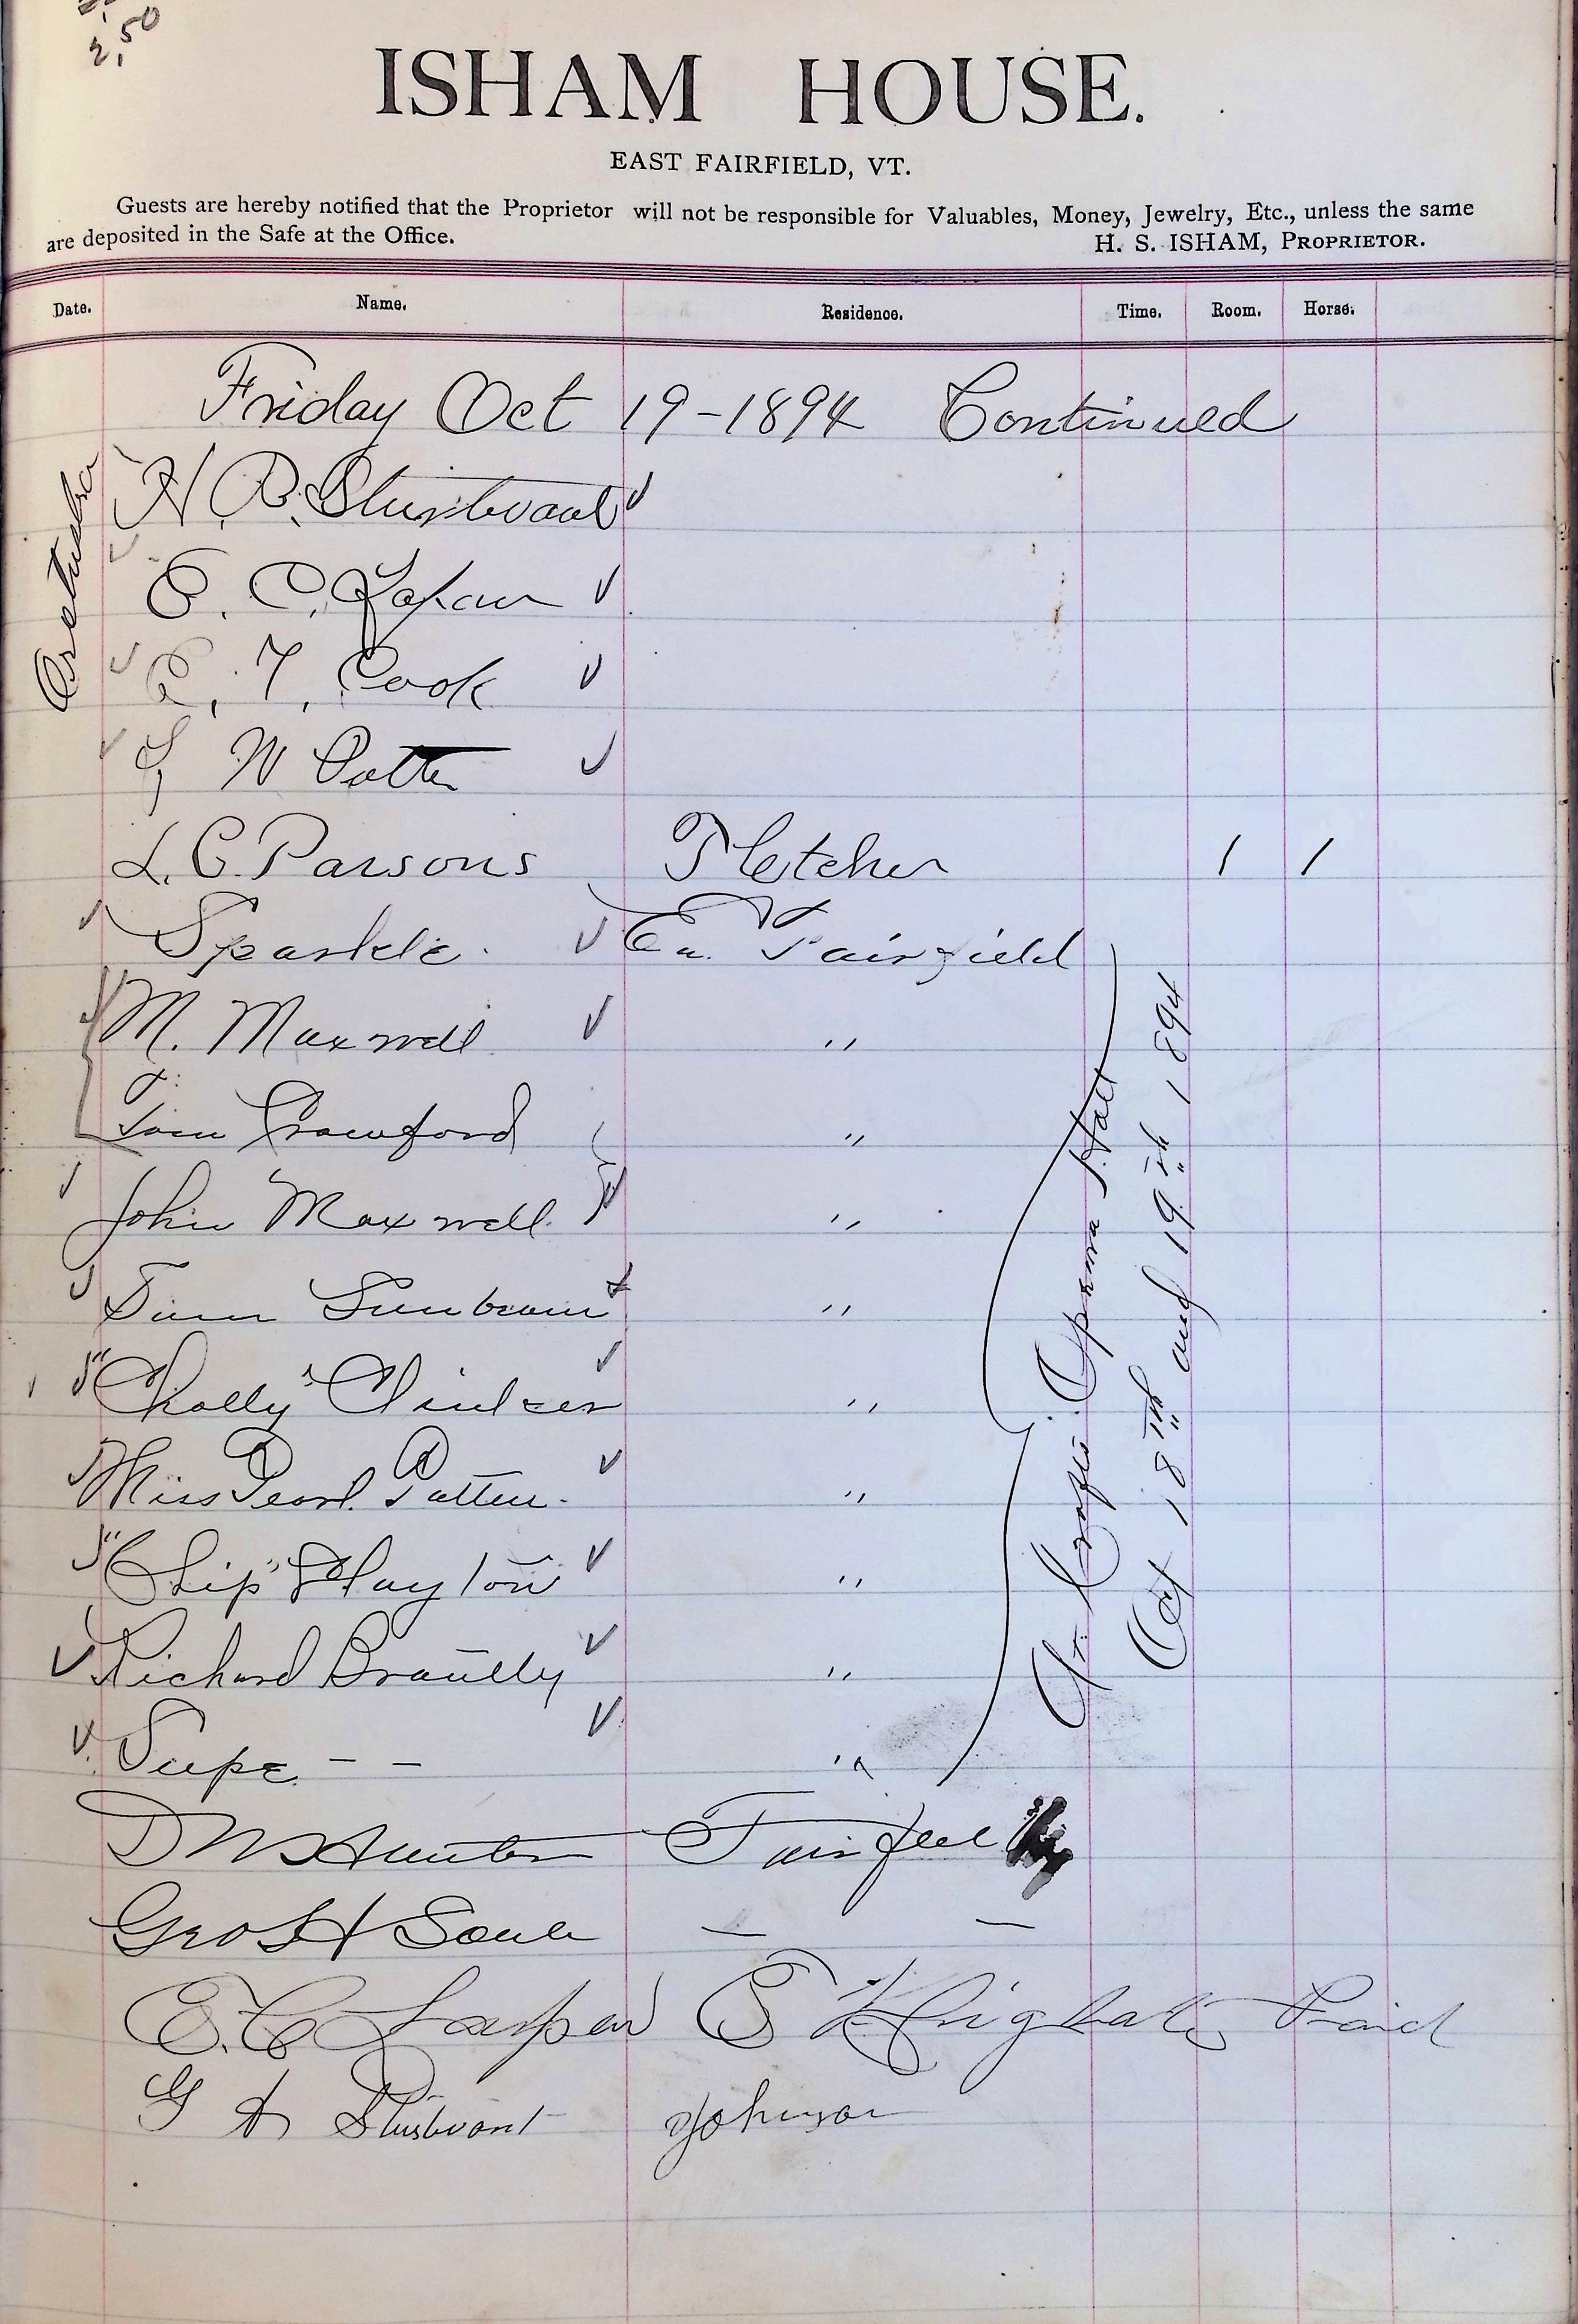 2.50
ISHAM HOUSE.
EAST FAIRFIELD, VT.
Guests are hereby notified that the Proprietor will not be responsible for Valuables, Money, Jewelry, Etc., unless the same
are deposited in the Safe at the Office.
H. S. ISHAM, PROPRIETOR.
Date. Name. Residence. Time. Room. Horse.
Friday Oct 19-1894 Continued
H. B. Sturtevant
E. C.
T. Cook
W
L. C. Parsons Fletcher 1 1
Sparkle. Ea. Fairfield
M. Maxwell "
Tom Crawford "
John Maxwell. "
Sunbeam "
"Cholly" "
Miss Pearl Patten. "
"Chip" Slayton "
Richard Brantly "
Supe. - - "
At Croft's Operra Hall
Oct 18th and 19th 1894
Hunter Fairfield
Geo H Soule — —
E. C. Paid
G A Sturtevant Johnson